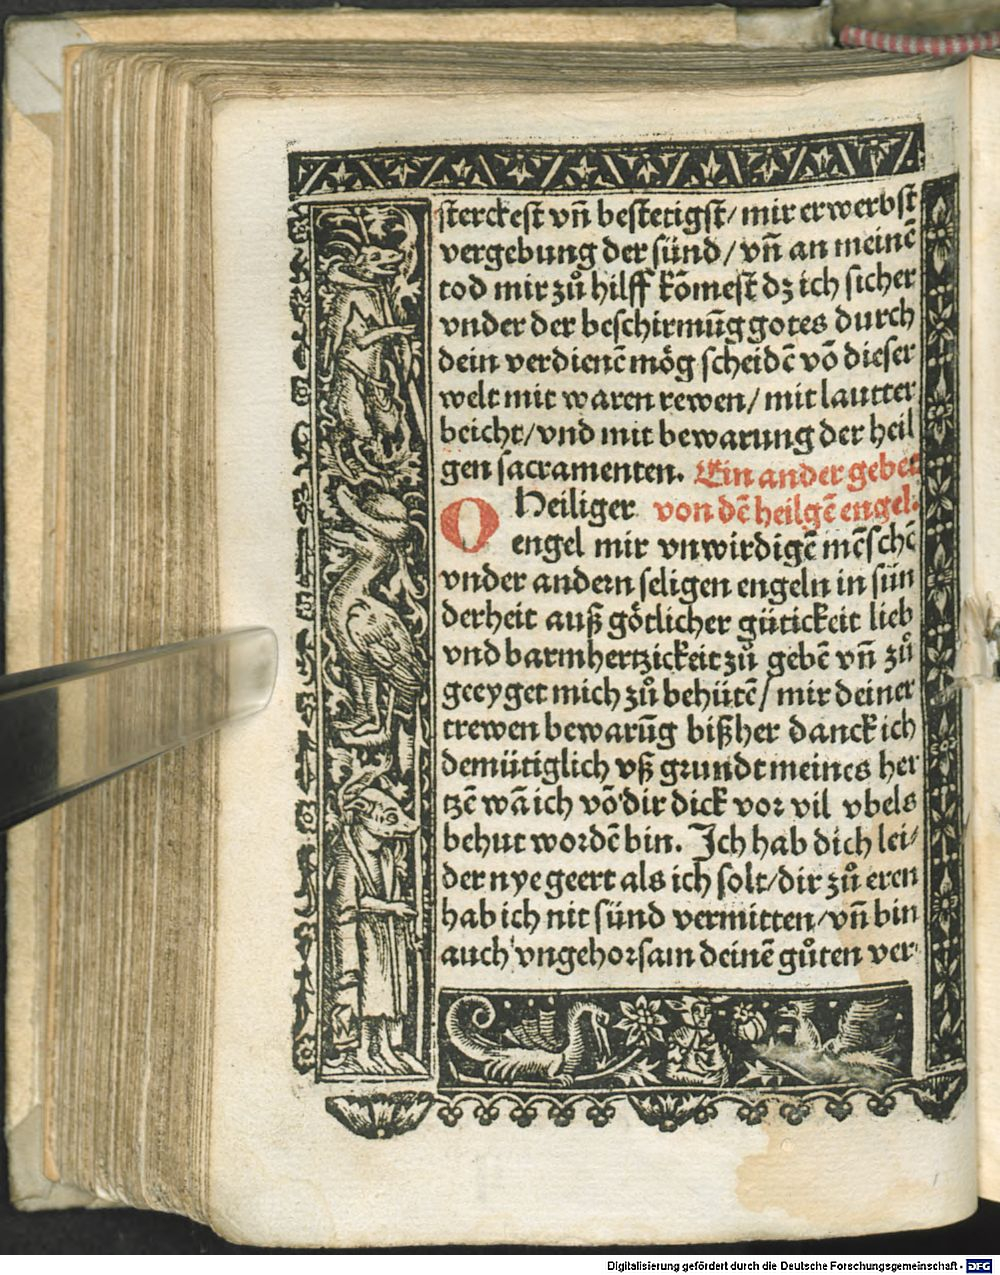 sterckest vn̄ bestetigst/ mir erwerbst
vergebung der sünd/ vn̄ an meinē
tod mir zů hilff kōmest dz ich sicher
vnder der beschirmūg gotes durch
dein verdienē mög scheidē vō dieser
welt mit waren rewen/ mit lautter
beicht/ vnd mit bewarung der heil
gen sacramenten. Ein ander gebet
O Heiliger von dē heilgē engel.
engel mir vnwirdigē mēschē
vnder andern seligen engeln in sün
derheit auß götlicher gütickeit lieb
vnd barmhertzickeit zů gebē vn̄ zů
geeyget mich zů behütē/ mir deiner
trewen bewarūg bißher danck ich
demütiglich vß grundt meines her
tzē wā ich vō dir dick vor vil vbels
behut wordē bin. Ich hab dich lei/
der nye geert als ich solt/ dir zů eren
hab ich nit sünd vermitten/ vn̄ bin
auch vngehorsam deinē gůten ver
Digitalisierung gefördert durch die Deutsche Forschungsgemeinschaft - DFG